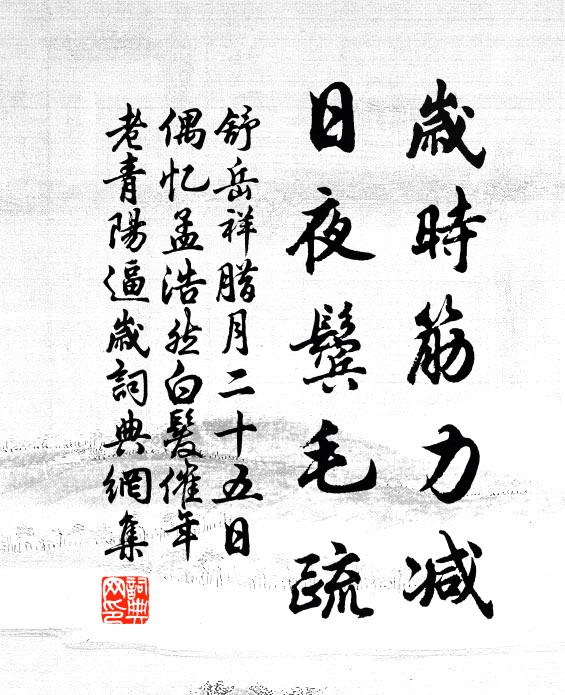 歲時筋力减
日夜鬢毛疏
舒岳祥腊月二十五日
偶忆孟浩然白髮催年
老青陽逼歲詞典網集
詞典
网印